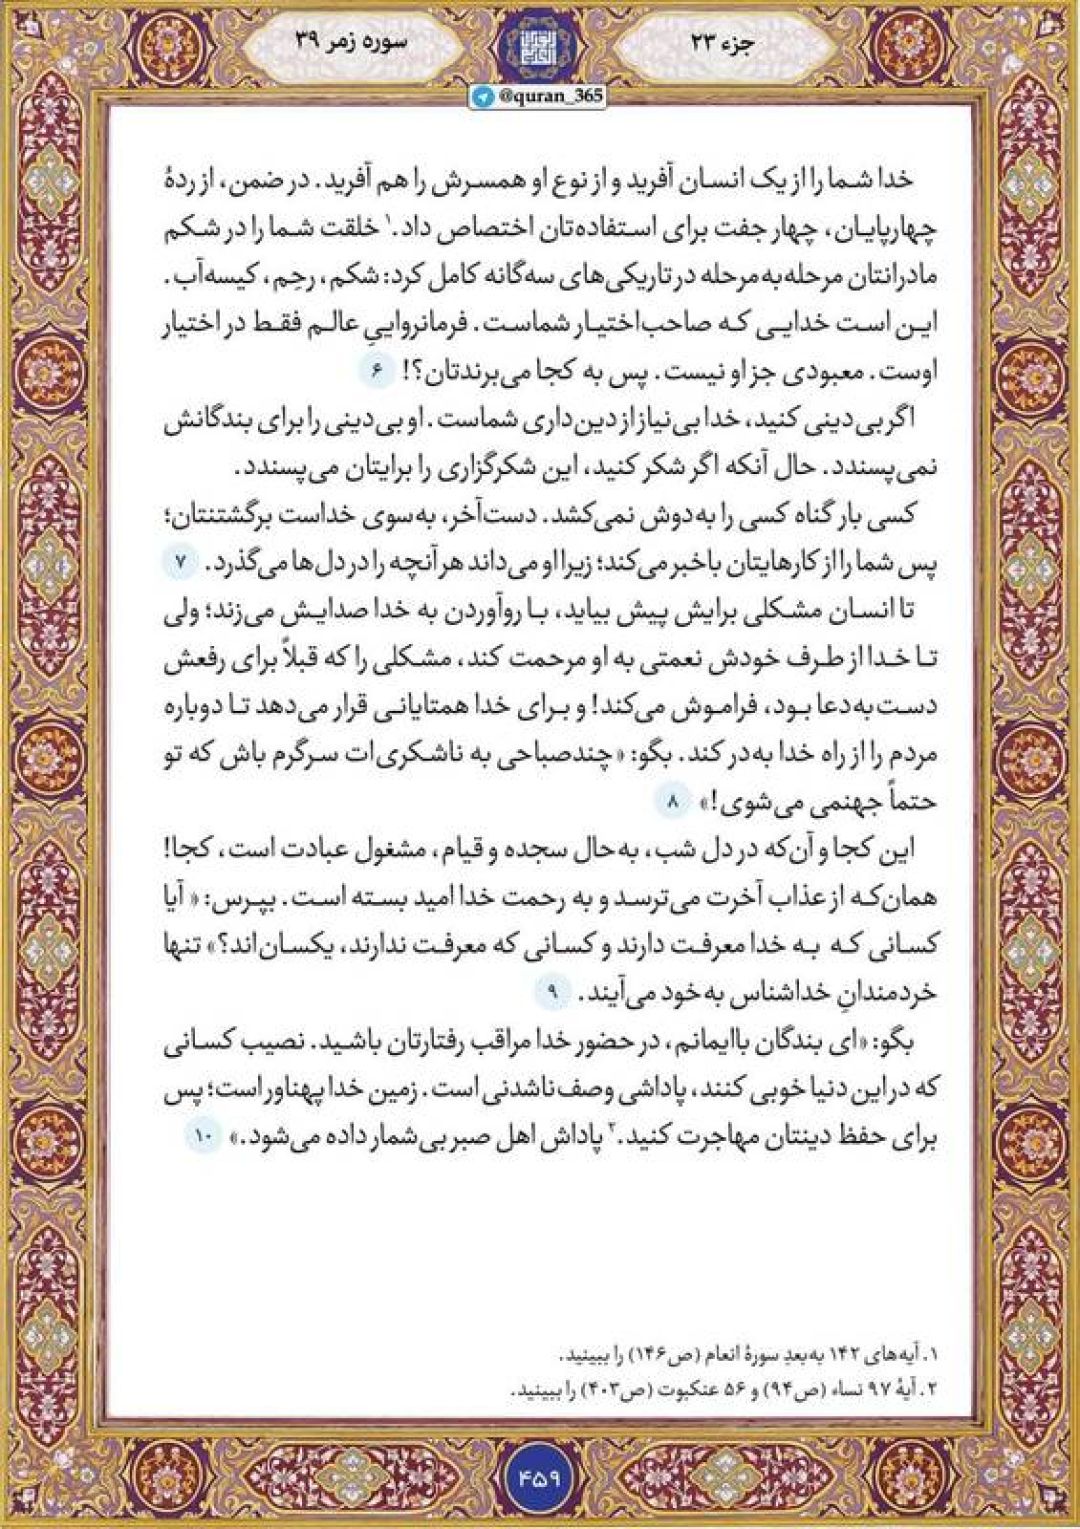 جزء ۲۳
سوره زمر ۳۹
@quran_365
خدا شما را از یک انسان آفرید و از نوع او همسرش را هم آفرید. در ضمن، از ردهٔ
چهارپایان، چهار جفت برای استفاده‌تان اختصاص داد.۱ خلقت شما را در شکم
مادرانتان مرحله‌به‌مرحله در تاریکی‌های سه‌گانه کامل کرد: شکم، رحِم، کیسه‌آب.
این است خدایی که صاحب‌اختیار شماست. فرمانرواییِ عالم فقط در اختیار
اوست. معبودی جز او نیست. پس به کجا می‌برندتان؟! ۶
اگر بی‌دینی کنید، خدا بی‌نیاز از دین‌داری شماست. او بی‌دینی را برای بندگانش
نمی‌پسندد. حال آنکه اگر شکر کنید، این شکرگزاری را برایتان می‌پسندد.
کسی بار گناه کسی را به‌دوش نمی‌کشد. دست‌آخر، به‌سوی خداست برگشتنتان؛
پس شما را از کارهایتان باخبر می‌کند؛ زیرا او می‌داند هر آنچه را در دل‌ها می‌گذرد. ۷
تا انسان مشکلی برایش پیش بیاید، با روآوردن به خدا صدایش می‌زند؛ ولی
تا خدا از طرف خودش نعمتی به او مرحمت کند، مشکلی را که قبلاً برای رفعش
دست‌به‌دعا بود، فراموش می‌کند! و برای خدا همتایانی قرار می‌دهد تا دوباره
مردم را از راه خدا به‌در کند. بگو: «چندصباحی به ناشکری‌ات سرگرم باش که تو
حتماً جهنمی می‌شوی!» ۸
این کجا و آن‌که در دل شب، به‌حال سجده و قیام، مشغول عبادت است، کجا!
همان‌که از عذاب آخرت می‌ترسد و به رحمت خدا امید بسته است. بپرس: «آیا
کسانی که به خدا معرفت دارند و کسانی که معرفت ندارند، یکسان‌اند؟» تنها
خردمندانِ خداشناس به‌خود می‌آیند. ۹
بگو: «ای بندگان باایمانم، در حضور خدا مراقب رفتارتان باشید. نصیب کسانی
که در این دنیا خوبی کنند، پاداشی وصف‌ناشدنی است. زمین خدا پهناور است؛ پس
برای حفظ دینتان مهاجرت کنید.۲ پاداش اهل صبر بی‌شمار داده می‌شود.» ۱۰
۱. آیه‌های ۱۴۲ به‌بعدِ سورهٔ انعام (ص۱۴۶) را ببینید.
۲. آیهٔ ۹۷ نساء (ص۹۴) و ۵۶ عنکبوت (ص۴۰۳) را ببینید.
۴۵۹